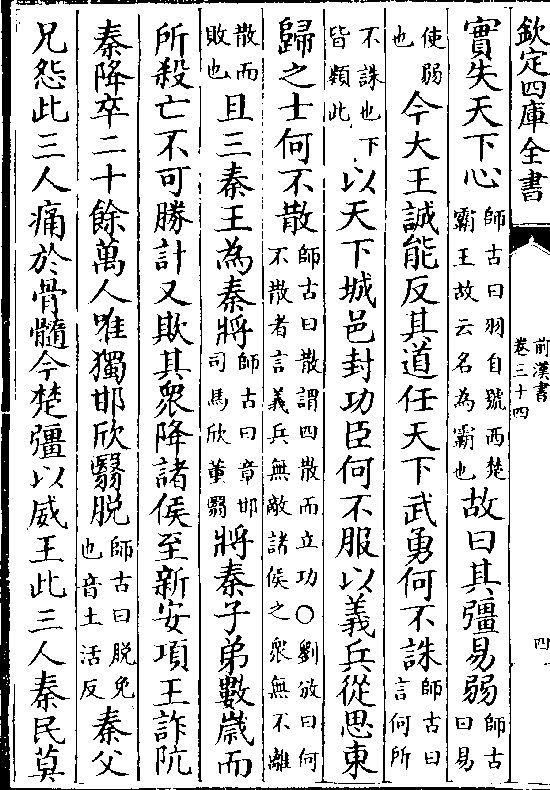 欽定四庫全書
前漢書
卷三十四
四
實失天下心師古曰羽自號西楚霸王故云名為霸也故曰其彊易弱師古曰易
使弱也今大王誠能反其道任天下武勇何不誅師古曰言何所
不誅也下皆類此以天下城邑封功臣何不服以義兵從思東
歸之士何不散師古曰散謂四散而立功○劉攽曰何不散者言義兵無敵諸侯之衆無不離
散而敗也且三秦王為秦將師古曰章邯司馬欣董翳將秦子弟數歲而
所殺亡不可勝計又欺其衆降諸侯至新安項王詐阬
秦降卒二十餘萬人唯獨邯欣翳脱師古曰脱免也音土活反秦父
兄怨此三人痛於骨髓今楚彊以威王此三人秦民莫